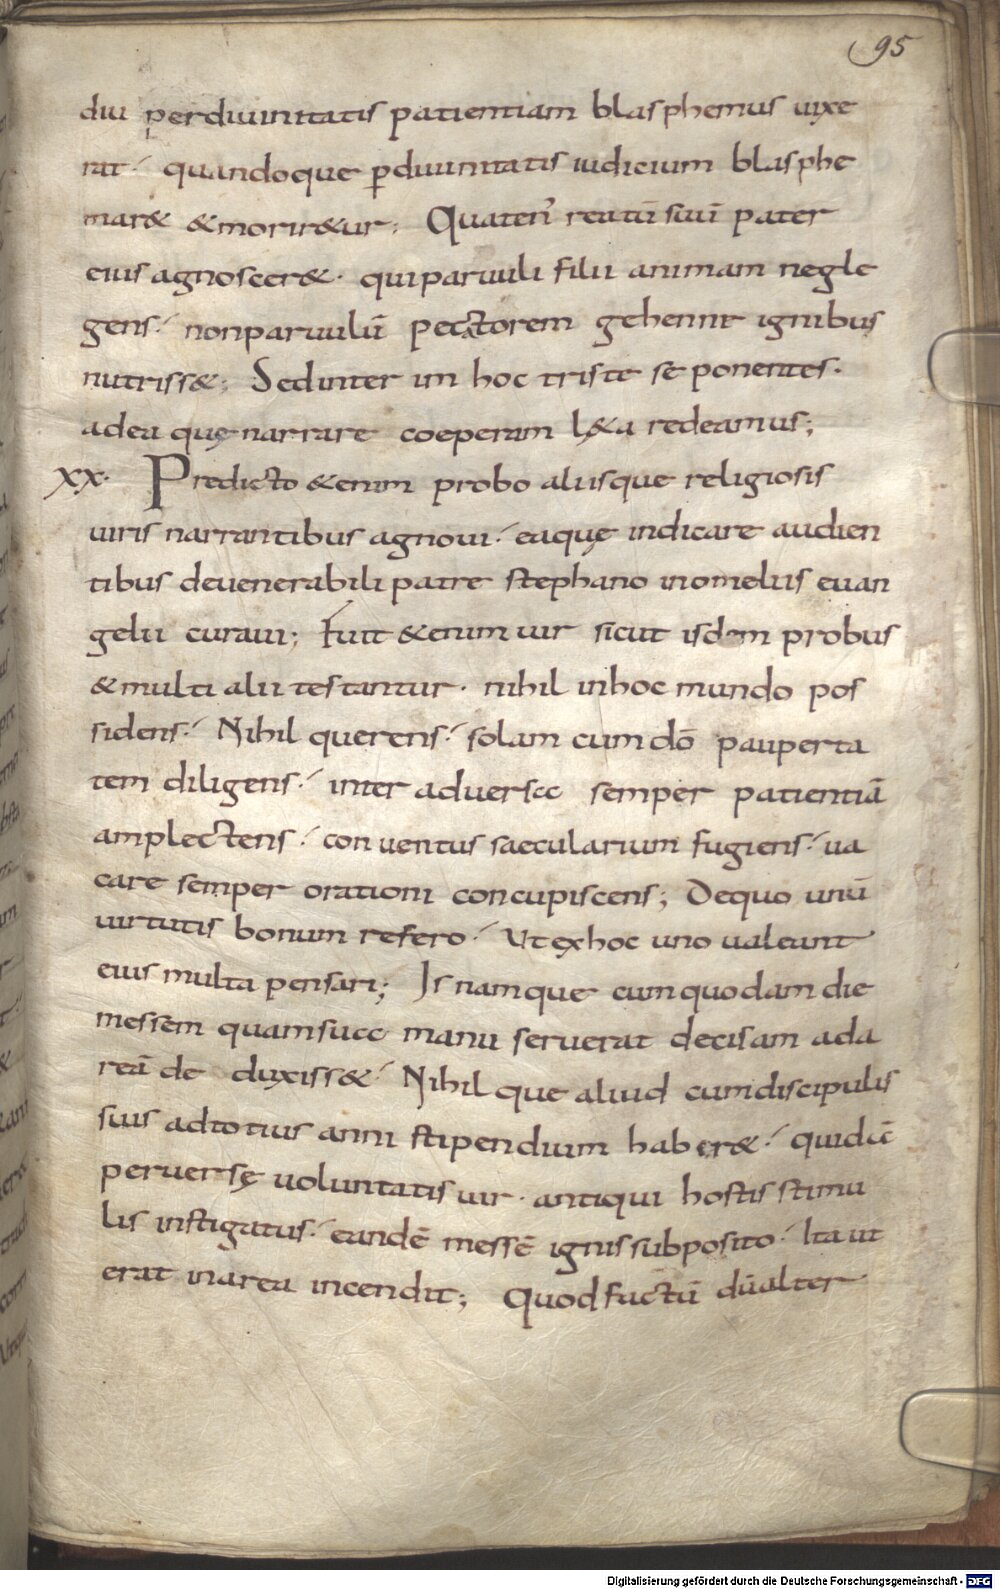 95
diu perdiuinitatis patientiam blasphemus uixe
rat· quandoque ꝑdiuinitatis iudicium blasphe
mar& &morir&ur; Quaten̄ reatū suū pater
eius agnoscer&· quiparuuli filii animam negle
gens· nonparuulū peccatorem gehennę ignibus
nutriss&; Sedinter im hoc triste se ponentes·
adea quę narrare coeperam l&a redeamus;
xx· Predicto &enim probo aliisque religiosis
uiris narrantibus agnoui· eaquę indicare audien
tibus deuenerabili patre stephano inomeliis euan
gelii curaui; Fuit &enim uir sicut isdem probus
&multi alii testantur· nihil inhoc mundo pos
sidens· Nihil querens· solam cum dō pauperta
tem diligens· inter aduersa semper patientiā
amplectens· conuentus saecularium fugiens· ua
care semper orationi concupiscens; Dequo unū
uirtutis bonum refero· Ut exhoc uno ualeant
eius multa pensari; Is namque cum quodam die
messem quamsua manu seruerat decisam ada
reā de duxiss&· Nihil que aliud cumdiscipulis
suis adtotius anni stipendium haber&· quidā
peruersę uoluntatis uir· antiqui hostis stimu
lis instigatus· eandē messē ignis subposito· Ita ut
erat inarea incendit; Quod factū dū alter
Digitalisierung gefördert durch die Deutsche Forschungsgemeinschaft - DFG